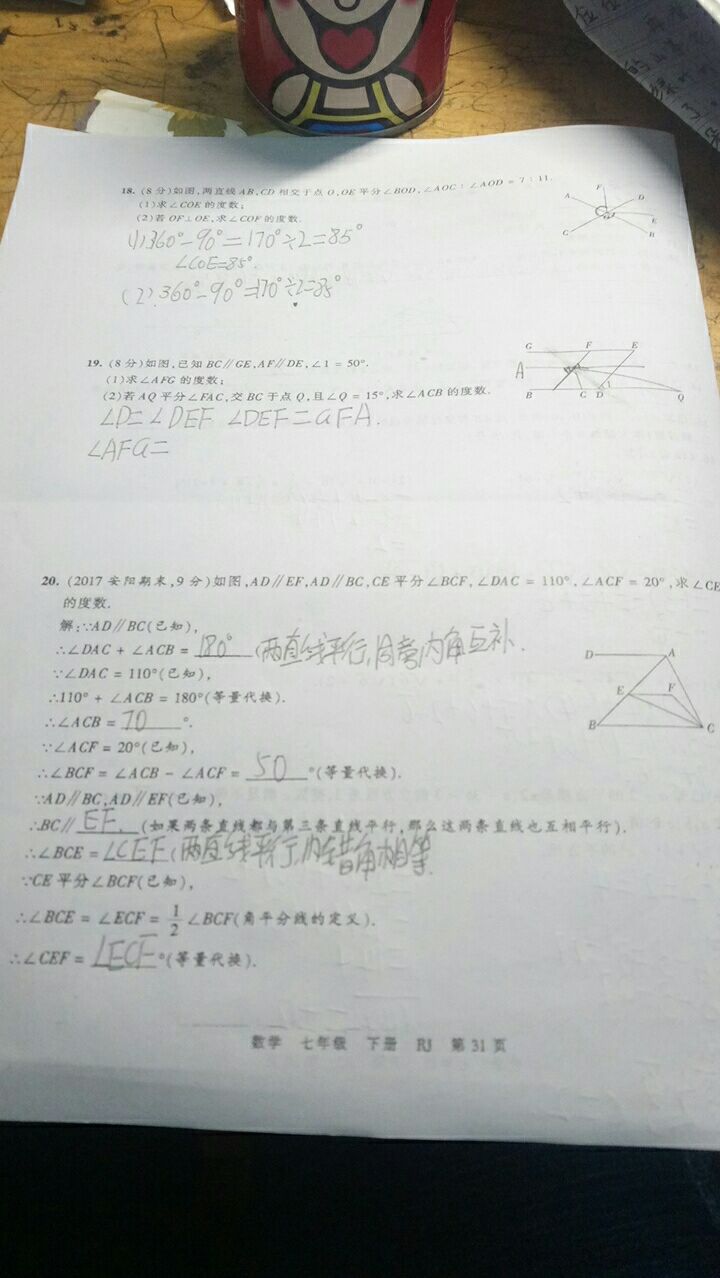 18. (8分)如图,两直线AB,CD相交于点O,OE平分∠BOD,∠AOC:∠AOD=7:11.
(1)求∠COE的度数;
(2)若OF⊥OE,求∠COF的度数.
(1)360°-90°=170°÷2=85°
∠COE=85°.
(2).360°-90°=170°÷2=85°
F
A
D
E
C
B
19. (8分)如图,已知BC∥GE,AF∥DE,∠1=50°.
(1)求∠AFG的度数;
(2)若AQ平分∠FAC,交BC于点Q,且∠Q=15°,求∠ACB的度数.
∠D=∠DEF ∠DEF=GFA.
∠AFG=
G F E
A
1
B C D Q
20. (2017安阳期末,9分)如图,AD∥EF,AD∥BC,CE平分∠BCF,∠DAC=110°,∠ACF=20°,求∠CE
的度数.
解:∵AD∥BC(已知),
∴∠DAC+∠ACB=180°(两直线平行,同旁内角互补.
∵∠DAC=110°(已知),
∴110°+∠ACB=180°(等量代换).
∴∠ACB=70°.
∵∠ACF=20°(已知),
∴∠BCF=∠ACB-∠ACF=50°(等量代换).
∵AD∥BC,AD∥EF(已知),
∴BC∥EF.(如果两条直线都与第三条直线平行,那么这两条直线也互相平行).
∴∠BCE=∠CEF(两直线平行,内错角相等.
∵CE平分∠BCF(已知),
∴∠BCE=∠ECF=1/2∠BCF(角平分线的定义).
∴∠CEF=∠ECF°(等量代换).
D A
E F
B C
数学 七年级 下册 RJ 第31页